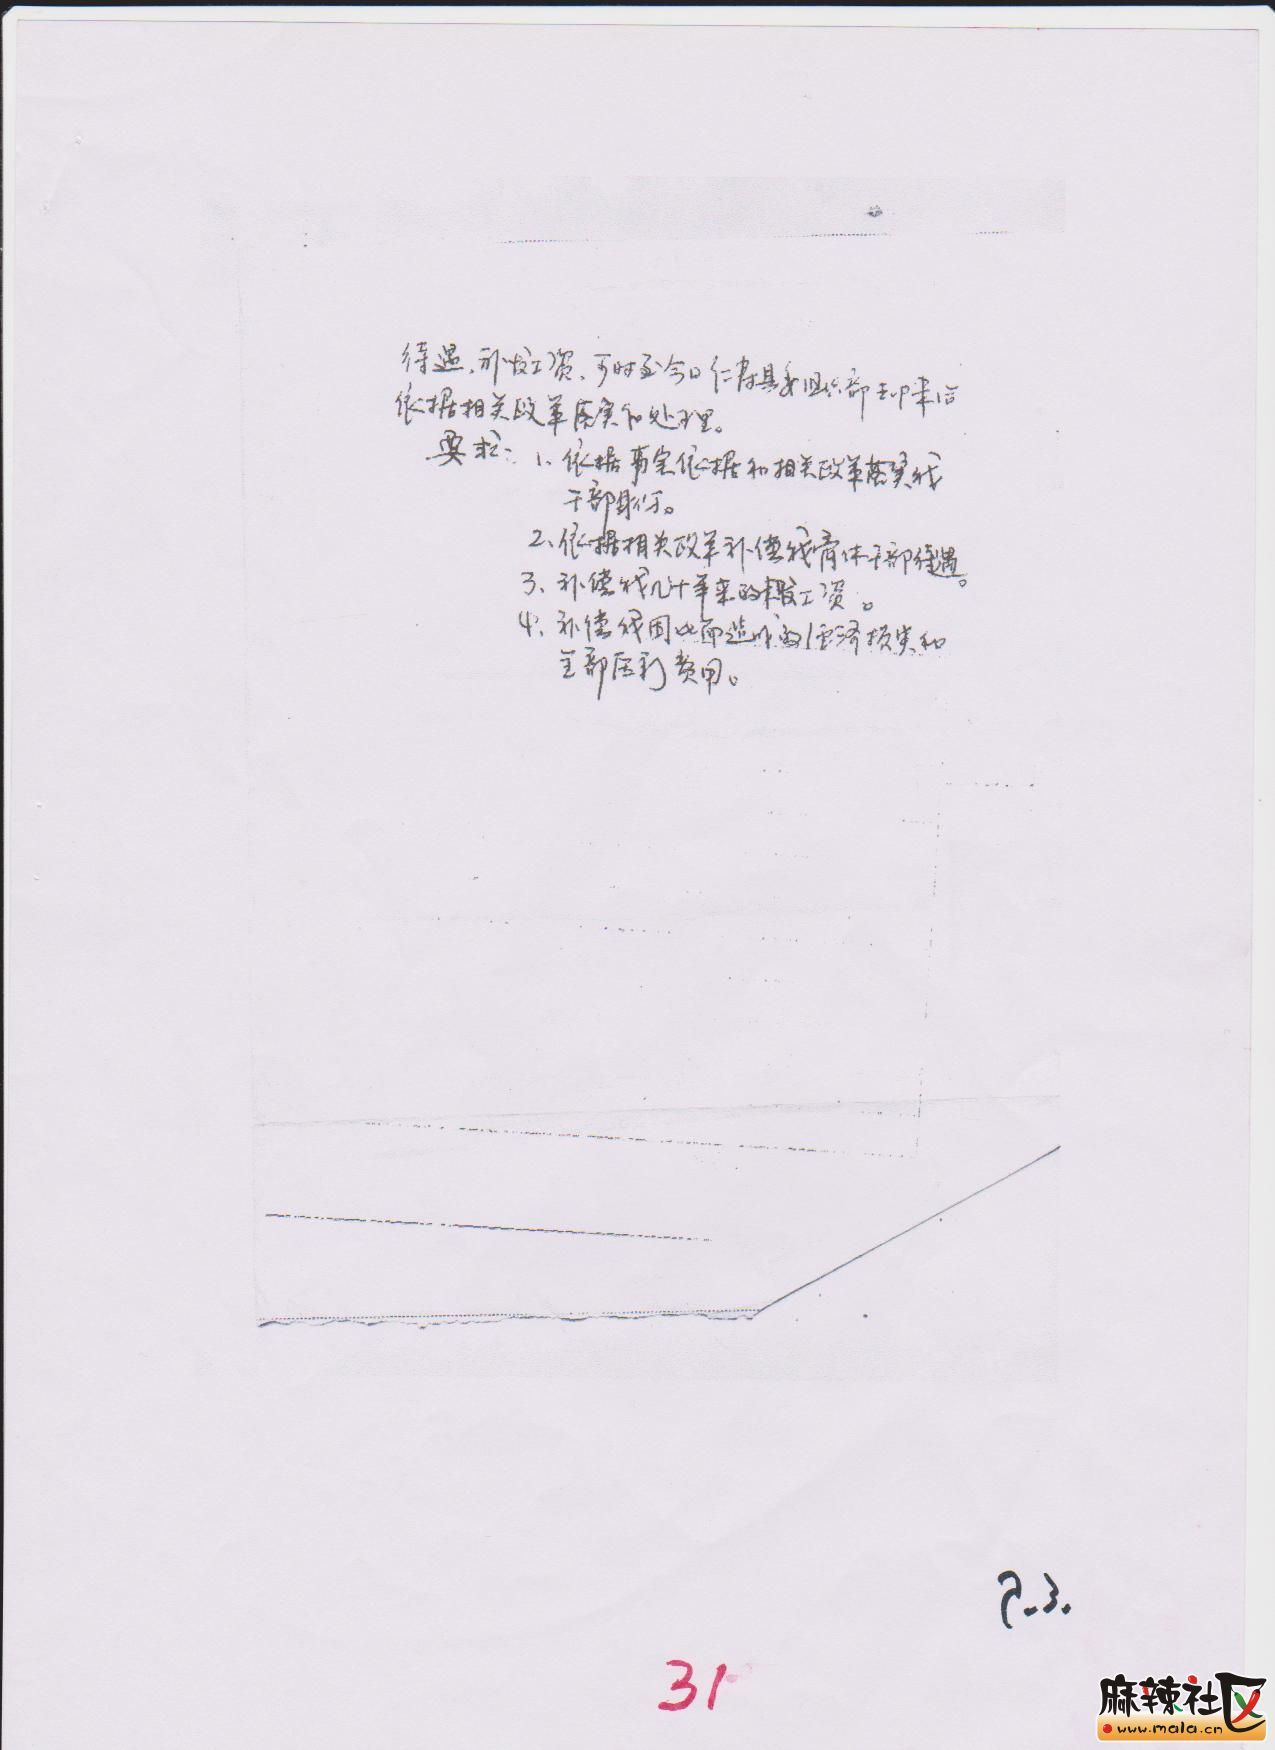 待遇、补发工资、可时至今日仁寿县委组织部却未给
依据相关政革落实和处理。
要求：1、依据事实依据和相关政革落实我
干部身份。
2、依据相关政革补偿我离休干部待遇。
3、补偿我几十年来的未发工资。
4、补偿我因此而造成的经济损失和
全部医疗费用。
P.3.
31
麻辣社区
www.mala.cn